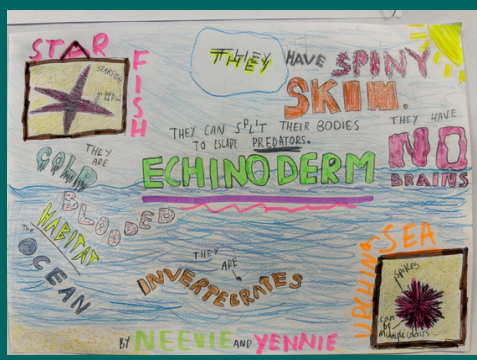 STAR
FISH
STARFISH
THEY HAVE SPINY
SKIM.
THEY CAN SPLIT THEIR BODIES
TO ESCAPE PREDATORS.
THEY HAVE
NO
BRAINS
ECHINODERM
THEY
ARE
COLD
BLOODED
HABITAT
The
OCEAN
THEY
ARE
INVERTEBRATES
SEA
URCHIN
spikes
can be
multiple colours
BY NEEVIE AND YENNIE